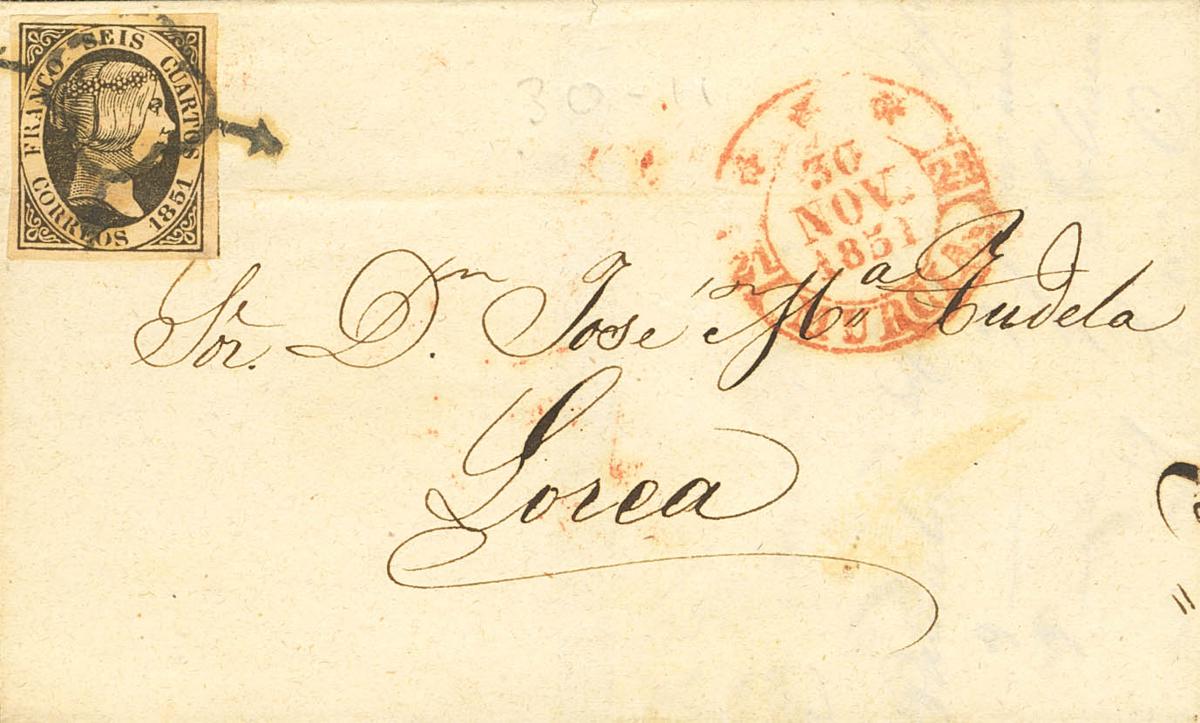 FRANCO SEIS CUARTOS
CORREOS 1851
30-11
30
NOV.
1851
Sor. Dn. José Ma. Tudela
Lorca